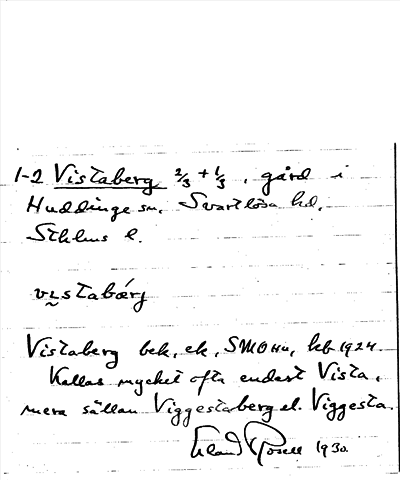 1-2 Vistaberg 2/3 + 1/3, gård i
Huddinge sn, Svartlösa hd,
Sthlms l.
vɩstabærj
Vistaberg bek, ek, SMOHu, kb 1924.
Kallas mycket ofta endast Vista,
mera sällan Viggestaberg el. Viggesta.
Erland Rosell 1930.